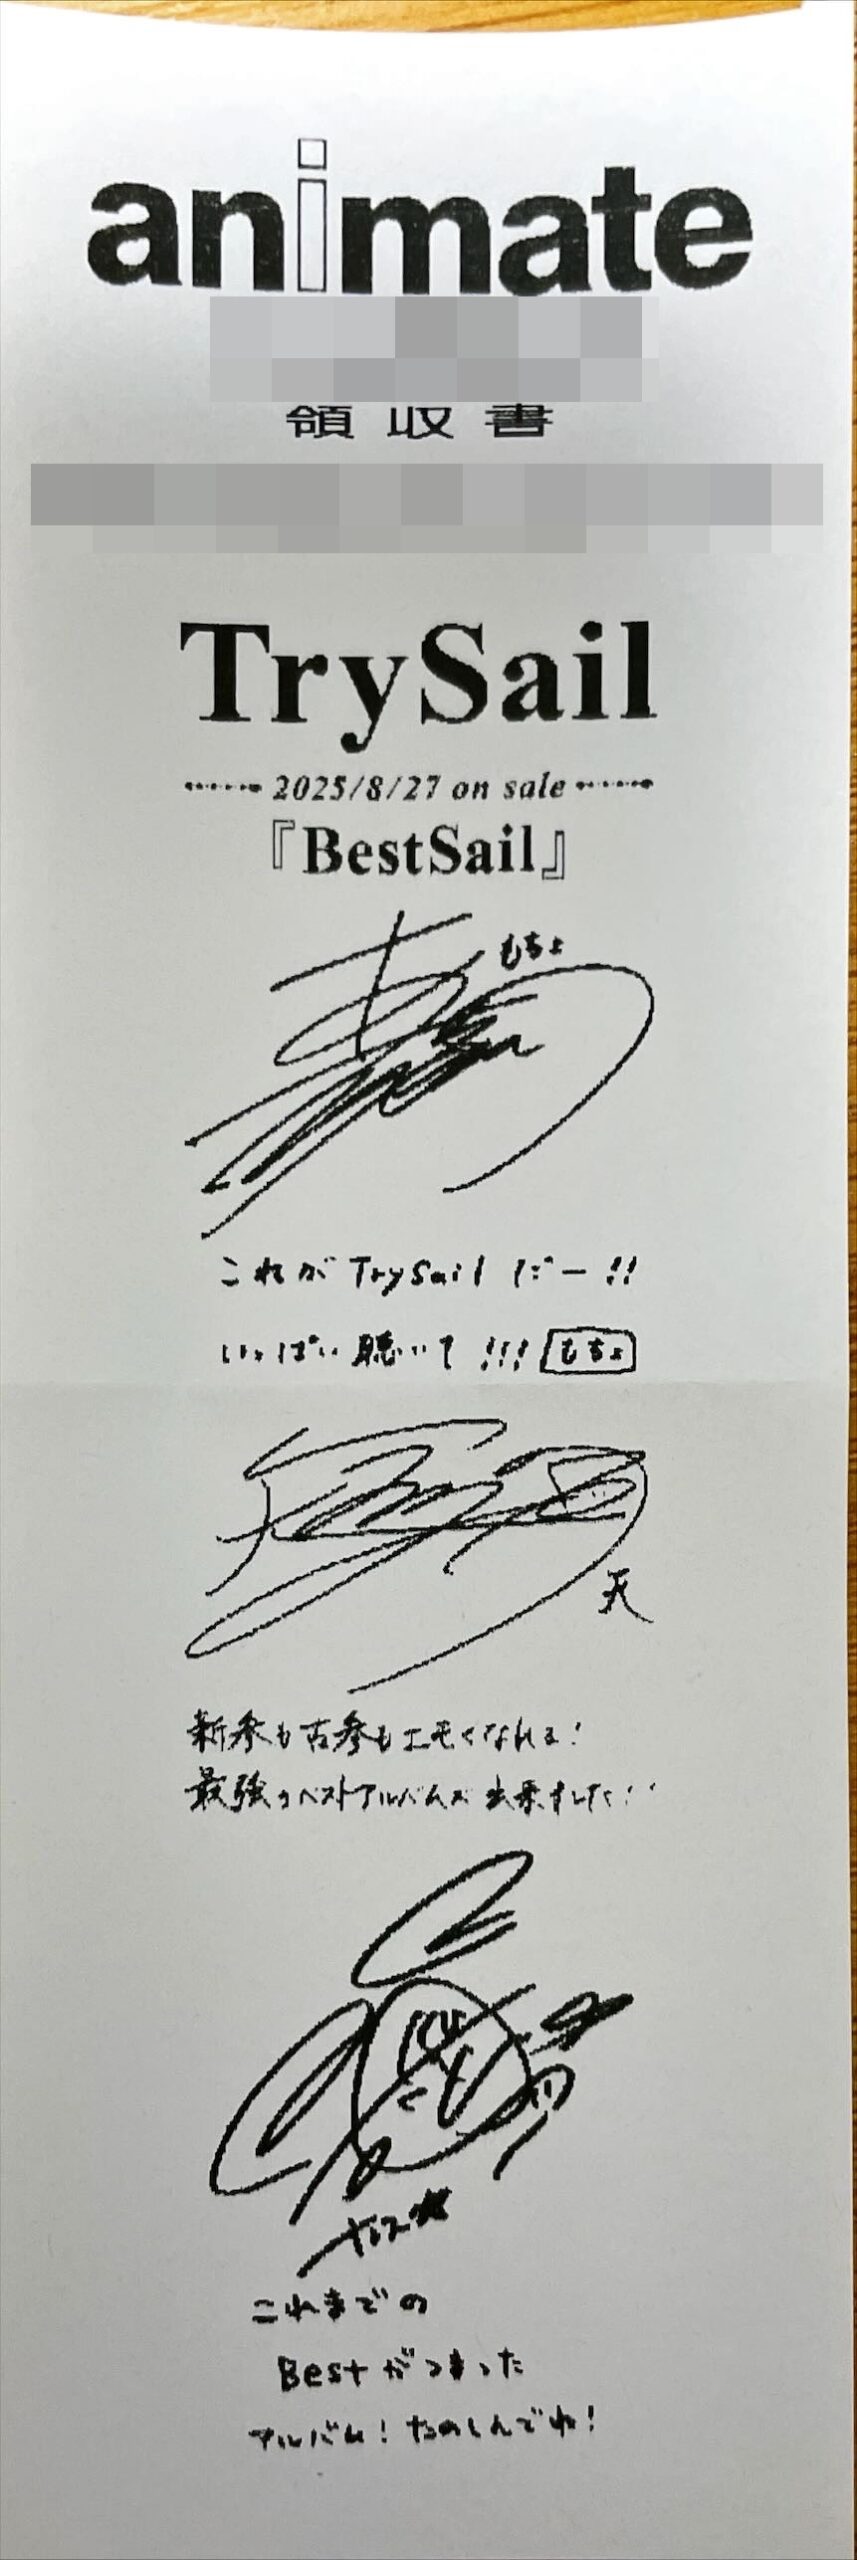 animate
領収書
TrySail
2025/8/27 on sale
『BestSail』
もちょ
これがTrySailだー!!
いっぱい聴いて!!!もちょ
天
新参も古参もエモくなれる!
最強のベストアルバムが出来ました!!
これまでの
Bestがつまった
アルバム!たのしんでね!